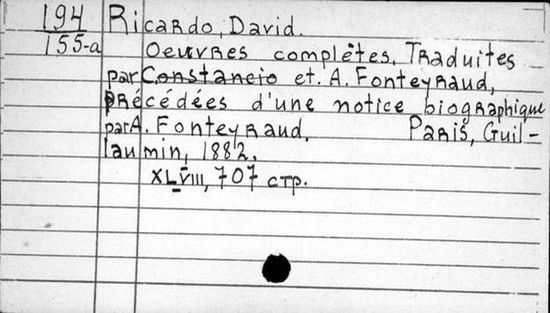 194 Ricardo, David.
155-a Oeuvres complètes. Traduites
par Constancio et. A. Fonteyraud,
précédées d'une notice biographique
par A. Fonteyraud. Paris, Guil-
laumin, 1882.
XLVIII, 707 стр.